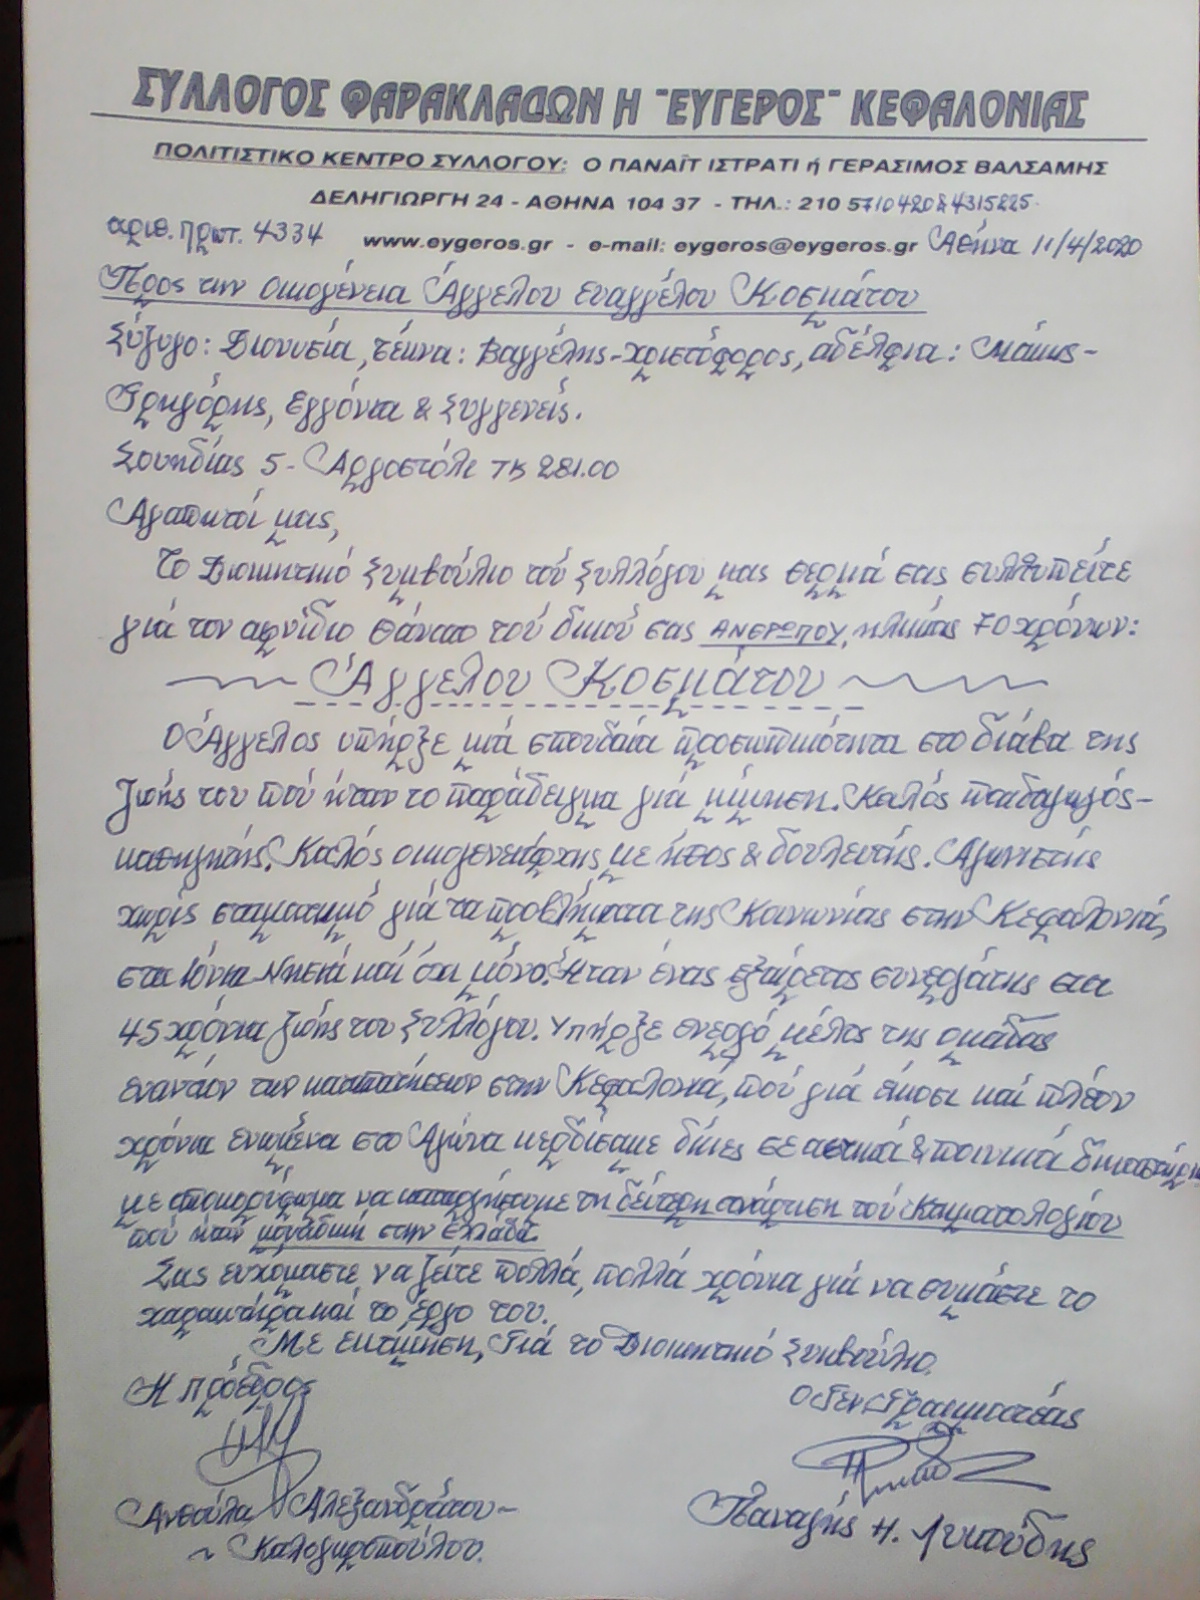 ΣΥΛΛΟΓΟΣ ΦΑΡΑΚΛΑΔΩΝ Η "ΕΥΓΕΡΟΣ" ΚΕΦΑΛΟΝΙΑΣ
ΠΟΛΙΤΙΣΤΙΚΟ ΚΕΝΤΡΟ ΣΥΛΛΟΓΟΥ: Ο ΠΑΝΑΪΤ ΙΣΤΡΑΤΙ ή ΓΕΡΑΣΙΜΟΣ ΒΑΛΣΑΜΗΣ
ΔΕΛΗΓΙΩΡΓΗ 24 - ΑΘΗΝΑ 104 37 - ΤΗΛ.: 210 5710420 & 4315225
αριθ. πρωτ. 4334 www.eygeros.gr - e-mail: eygeros@eygeros.gr Αθήνα 11/4/2020
Προς την οικογένεια Άγγελου Ευαγγέλου Κοσμάτου
Σύζυγο: Διονυσία, τέκνα: Βαγγέλης-Χριστόφορος, αδέλφια: Μάκης-
Γρηγόρης, εγγόνια & Συγγενείς.
Σουηδίας 5 - Αργοστόλι ΤΚ 281.00
Αγαπητοί μας,
Το Διοικητικό Συμβούλιο τού Συλλόγου μας θερμά σας συλλυπείτε
γιά τον αφνίδιο θάνατο τού δικού σας ΑΝΘΡΩΠΟΥ, ηλικίας 70 χρόνων:
Άγγελου Κοσμάτου
Ο Άγγελος υπήρξε μιά σπουδαία προσωπικότητα στο διάβα της
ζωής του πού ήταν το παράδειγμα γιά μίμηση. Καλός παιδαγωγός-
καθηγητής. Καλός οικογενειάρχης με ήθος & δουλευτής. Αγωνιστής
χωρίς σταματημό γιά τα προβλήματα της Κοινωνίας στην Κεφαλονιά,
στα Ιόνια Νησιά καί όχι μόνο. Ήταν ένας εξαίρετος συνεργάτης στα
45 χρόνια ζωής του Συλλόγου. Υπήρξε ενεργό μέλος της ομάδας
εναντίον των καταπατήσεων στην Κεφαλονιά, πού γιά είκοσι καί πλέον
χρόνια ενωμένα στο Αγώνα κερδίσαμε δίκες σε αστικά & ποινικά δικαστήρια
με αποκορύφωμα να καταργήσουμε τη δεύτερη ανάρτηση τού Κτηματολογίου
πού ήταν μοναδική στην Ελλάδα.
Σας ευχόμαστε να ζείτε πολλά, πολλά χρόνια γιά να θυμάστε το
χαρακτήρα καί το έργο του.
Με εκτίμηση, Γιά το Διοικητικό Συμβούλιο.
Η πρόεδρος Ο Γεν. Γραμματέας
Ανθούλα Αλεξανδράτου- Παναγής Η. Λυκούδης
Καλογηροπούλου.